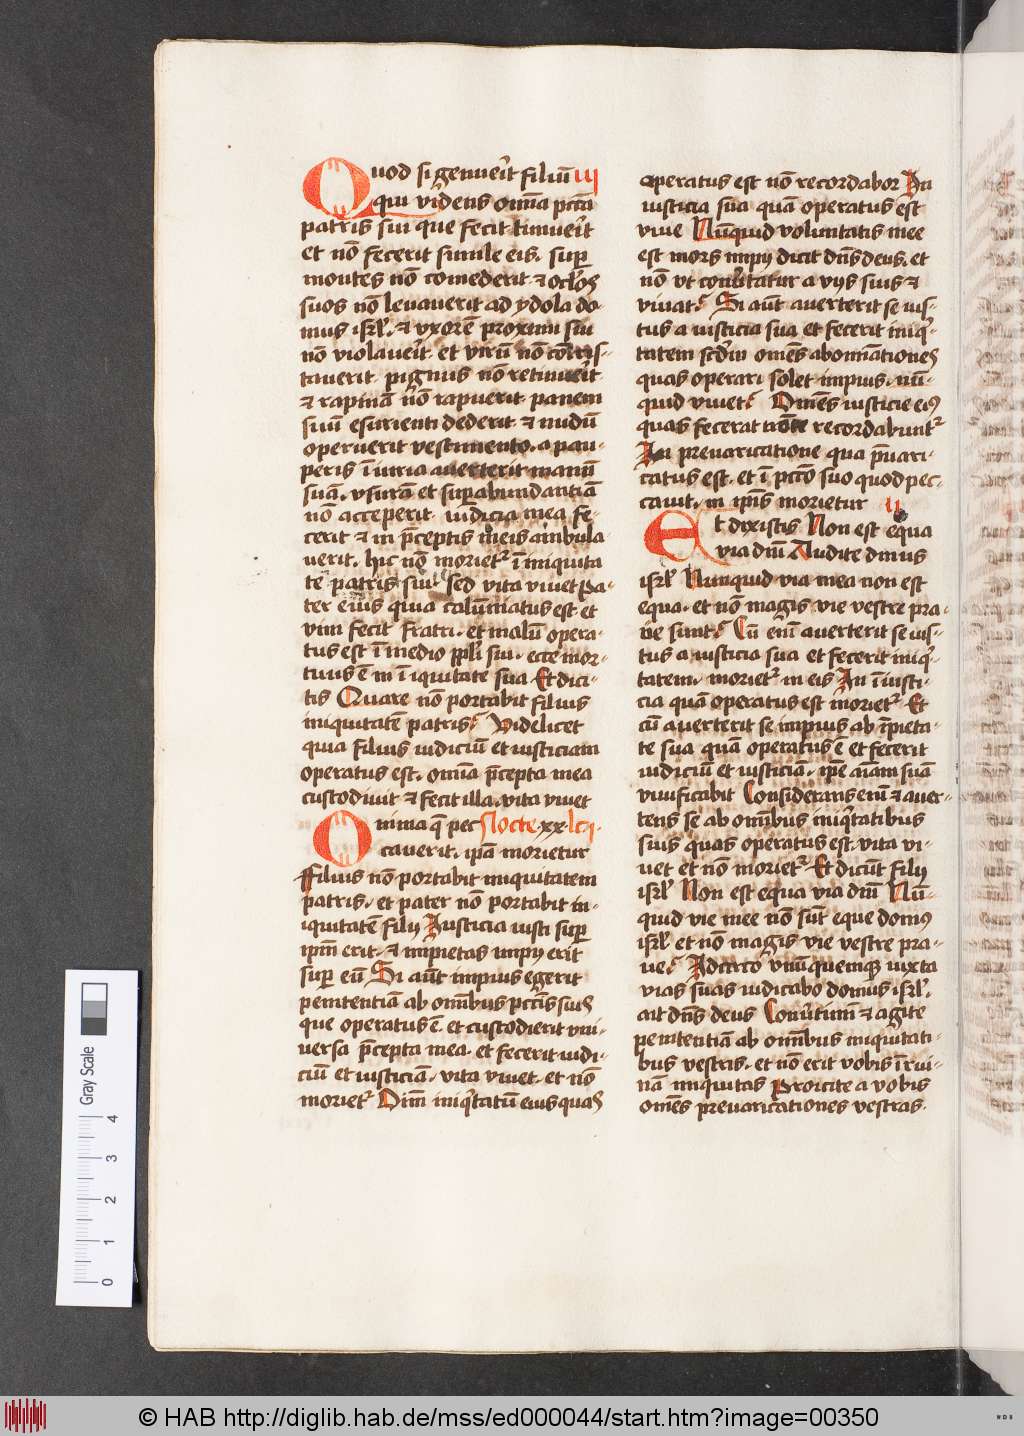 Quod si genueit̄ filiū iij
qui videns om̄ia pctā
patris sui que fecit timueit̄
et nō fecerit simile eis. sup̄
montes nō comederit ⁊ oclōs
suos nō leuauerit ad ydola do-
mus isrl̄. ⁊ vxorē proximi sui
nō violaueit̄. et virū nō cōtris-
tauerit pignus nō retinueit̄
⁊ rapinā nō rapuerit panem
suū esurienti dederit ⁊ nudū
operuerit vestimento. a pau-
peris īiuria auerterit manū
suā. vsurā et supabundantiā
nō acceperit iudicia mea fe-
cerit ⁊ in p̄ceptis meis ambula
uerit. hic nō morietᷣ ī iniquita
te patris sui. sed vita viuet Pa-
ter eius quia calūniatus est et
vim fecit fratri. et malū opera-
tus est ī medio ppl̄i sui. ecce mor-
tuus ē in īiquitate sua Et dici-
tis Quare nō portabit filius
iniquitatē patris? Videlicet
quia filius iudiciū et iusticiam
operatus est. om̄ia p̄cepta mea
custodiuit ⁊ fecit illa. vita viuet
Anima q̄ pec Nocte xx lc̄i
cauerit. ipā morietur
Filius nō portabit iniquitatem
patris. et pater nō portabit in-
iquitatē filij Iusticia iusti sup̄
ipm̄ erit. ⁊ impietas impij erit
sup̄ eū Si aūt impius egerit
penitentiā ab om̄ibus pctīs suis
que operatus ē. et custodierit vni-
uersa p̄cepta mea. et fecerit iudi-
ciū et iusticiā. vita viuet. et nō
morietᷣ Oīm iniqͥtatū eius quas
operatus est nō recordabor In
iusticia sua quā operatus est
viue Nūquid voluntatis mee
est mors impij dicit dn̄s deus. et
nō vt conūtatur a vijs suis ⁊
viuat? Si aūt auerterit se ius-
tus a iusticia sua et fecerit iniqͥ-
tatem scd̄m omēs abomīationes
quas operari solet impius. nū-
quid viuet? Omēs iusticie eiꝰ
quas fecerat nō recordabuntᷣ
In preuaricatione qua p̄uari-
catus est. et ī pctō suo quod pec-
cauit. in ipīs morietur ij
Et dixistis Non est equa
via dn̄i Audite domus
isrl̄ Nunquid via mea non est
equa. et nō magis vie vestre pra-
ue sunt? Cū enī auerterit se ius-
tus a iusticia sua et fecerit iniqͥ-
tatem. morietᷣ in eis In īiusti-
cia quā operatus est morietᷣ Et
cū auerterit se impius ab īpieta-
te sua quā operatus ē et fecerit
iudiciū et iusticiā. ipē aīam suā
viuificabit Considerans enī ⁊ auer-
tens se ab om̄ibus iniqͥtatibus
suis quas operatus est. vita vi-
uet et nō morietᷣ Et dicūt filij
isrl̄ Non est equa via dn̄i Nū-
quid vie mee nō sūt eque domꝰ
isrl̄ et nō magis vie vestre pra-
ue? Idcirco vnūquemqꝫ iuxta
vias suas iudicabo domus. isrl̄.
ait dn̄s deus Conūtimī ⁊ agite
penitentiā ab om̄ibus iniquitati-
bus vestris. et nō erit vobis ī rui-
nā iniquitas Proicite a vobis
omēs preuaricationes vestras.
Gray Scale
0 1 2 3 4
© HAB http://diglib.hab.de/mss/ed000044/start.htm?image=00350